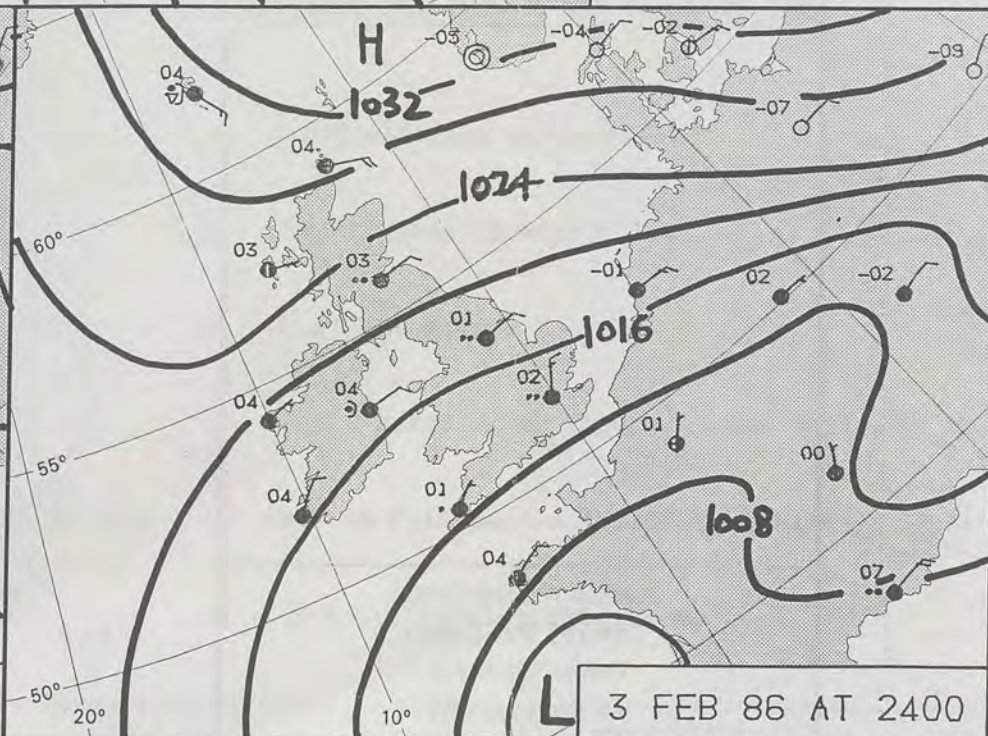 H
-03
-04
-02
-09
04
1032
-07
04
1024
60°
03
03
-01
02
-02
01
1016
04
04
02
01
00
55°
04
01
1008
04
07
50°
20°
10°
L
3 FEB 86 AT 2400